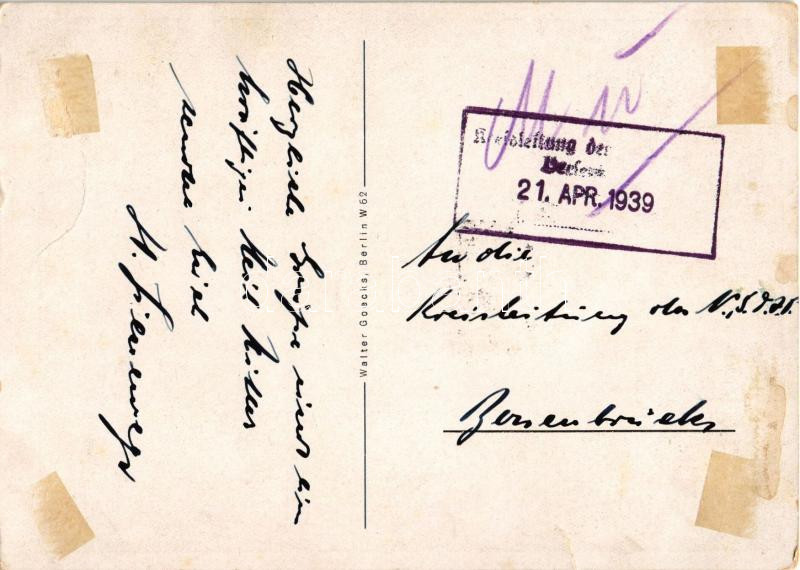 Herzliche Grüße und ein
kräftiges Heil Hitler
sendet
H.
Walter Goecks, Berlin W 62
Kreisleitung der
21. APR. 1939
An die
Kreisleitung der N.S.D.A.P.
Bersenbrück